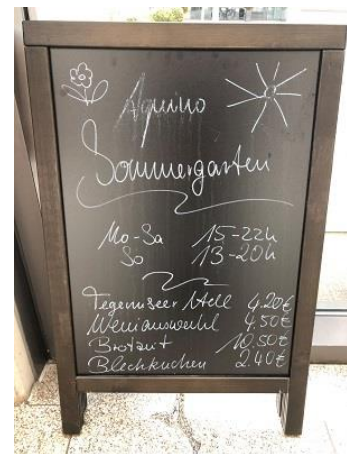 Aquino
Sommergarten
Mo-Sa 15-22h
So 13-20h
Tegernseer Hell 4.20€
Weinauswahl 4.50€
Brotzeit 10.50€
Blechkuchen 2.40€